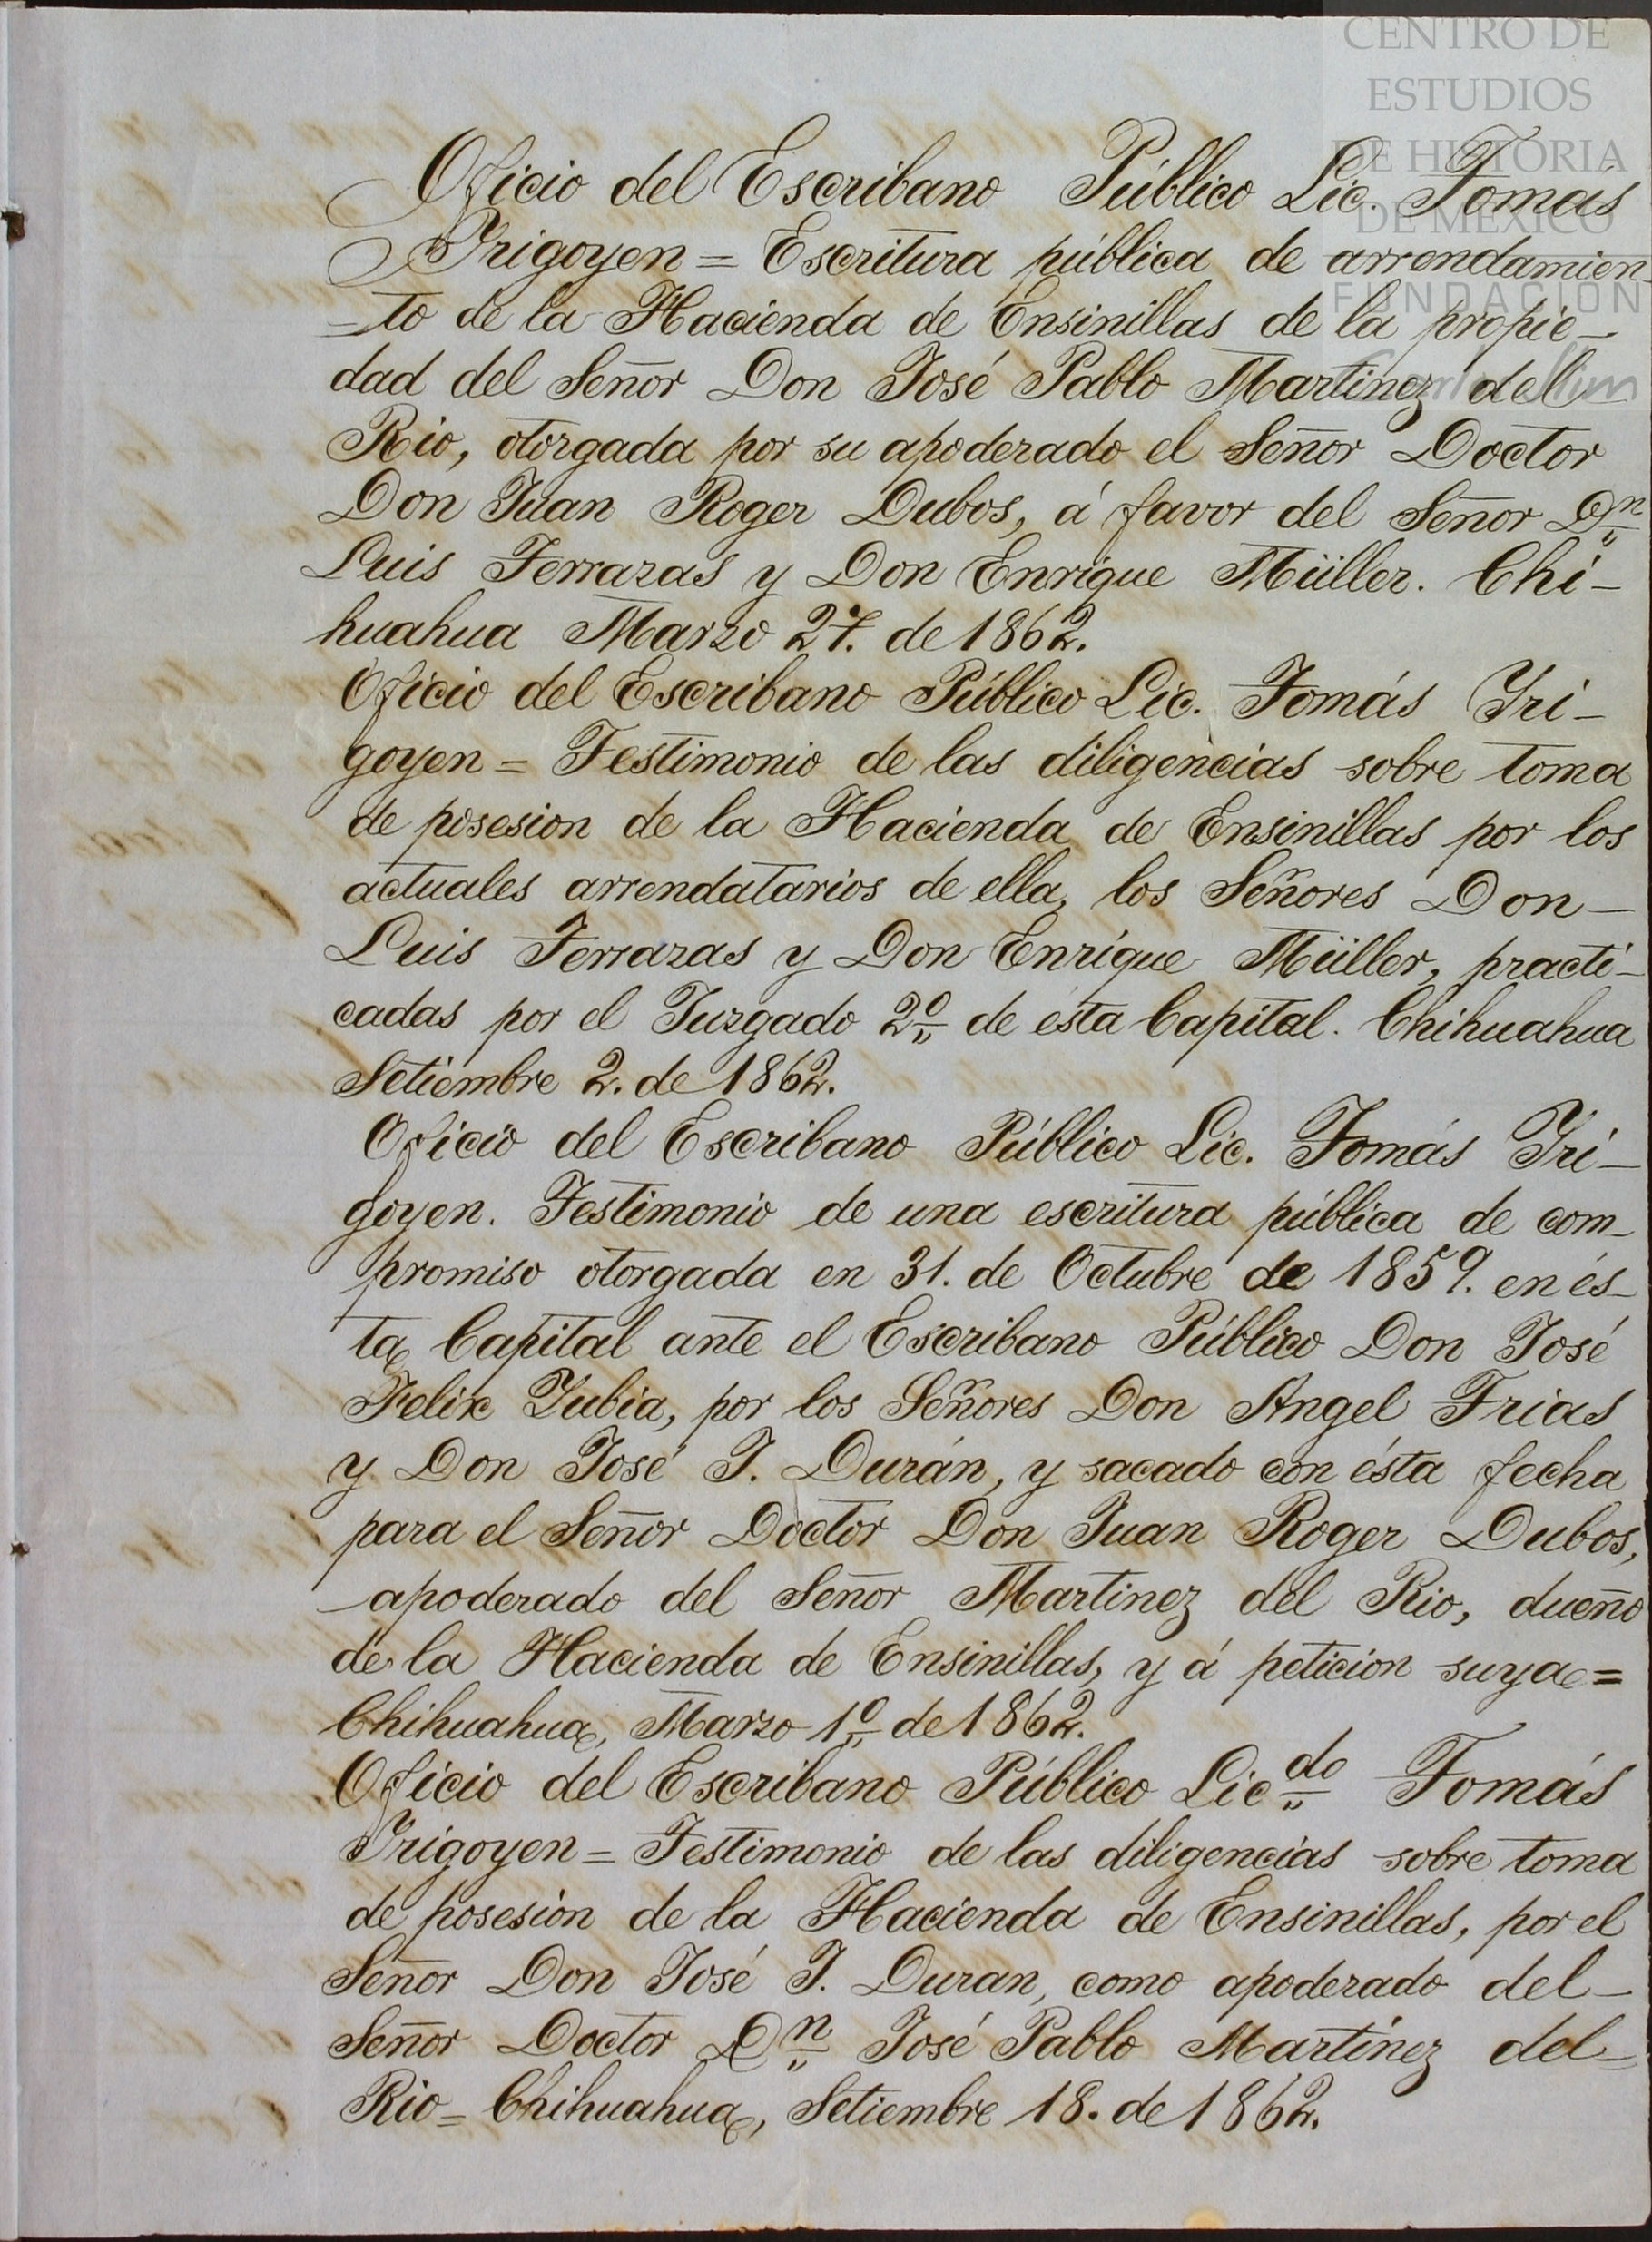 CENTRO DE
ESTUDIOS
DE HISTORIA
DE MEXICO
FUNDACION
Carlos Slim
Oficio del Escribano Público Lic. Tomás
Yrigoyen = Escritura pública de arrendamien
=to de la Hacienda de Ensinillas de la propie-
dad del Señor Don José Pablo Martinez del
Rio, otorgada por su apoderado el Señor Doctor
Don Juan Roger Dubos, á favor del Señor Dn
Luis Terrazas y Don Enrique Müller. Chi-
huahua Marzo 27. de 1862.
Oficio del Escribano Público Lic. Tomás Yri-
goyen = Testimonio de las diligencias sobre toma
de posesion de la Hacienda de Ensinillas por los
actuales arrendatarios de ella, los Señores Don-
Luis Terrazas y Don Enrique Müller, practi-
cadas por el Juzgado 2º de ésta Capital. Chihuahua
Setiembre 2. de 1862.
Oficio del Escribano Público Lic. Tomás Yri-
goyen. Testimonio de una escritura pública de com-
promiso otorgada en 31. de Octubre de 1859. en és-
ta Capital ante el Escribano Público Don José
Felix Yubia, por los Señores Don Angel Frias
y Don José J. Durán, y sacado con ésta fecha
para el Señor Doctor Don Juan Roger Dubos,
apoderado del Señor Martinez del Rio, dueño
de la Hacienda de Ensinillas, y á peticion suya=
Chihuahua, Marzo 1º de 1862.
Oficio del Escribano Público Licdo Tomás
Yrigoyen = Testimonio de las diligencias sobre toma
de posesion de la Hacienda de Ensinillas, por el
Señor Don José J. Duran, como apoderado del-
Señor Doctor Dn José Pablo Martinez del-
Rio= Chihuahua, Setiembre 18. de 1862.